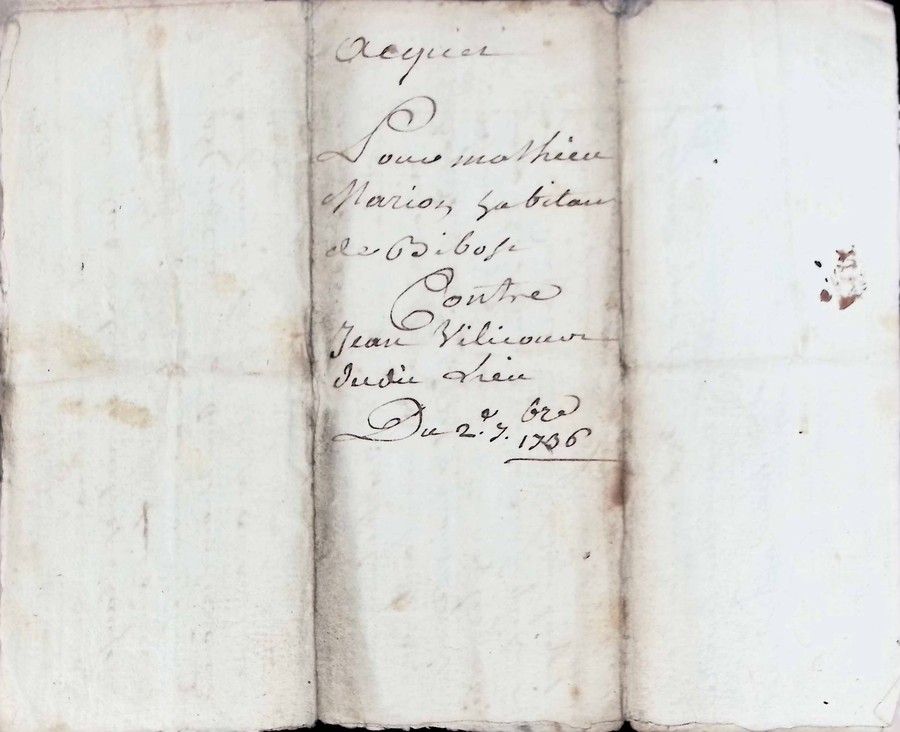 Acquiei
Pour mathieu
Marion habitan
de Bibost
Contre
Jean Vilicour
dudit Lieu
Du 2.e 7.bre
1736